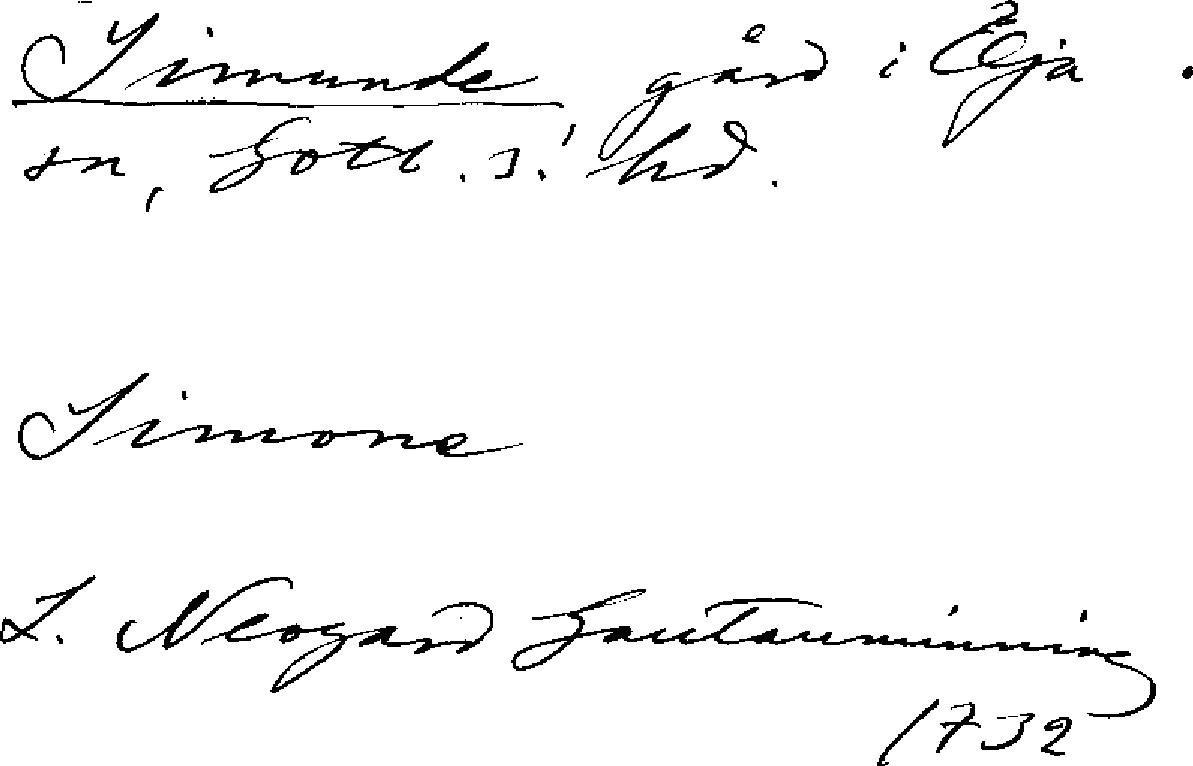 Simunde gård i Öja
sn, Gotl. s. hd.
Simone
L. Neogard Gautauminning
1732